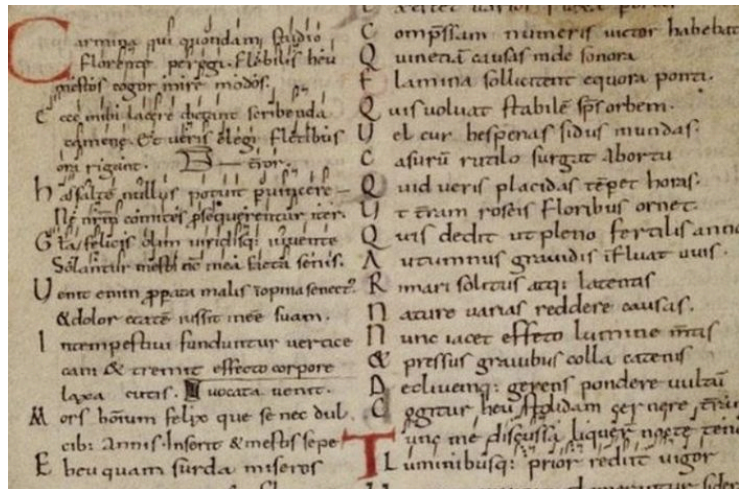 Carmina qui quondam studio
florente peregi. Flebilis heu
mestos cogor inire modos.
Ecce mihi lacere dictant scribenda
camene. Et veris elegi fletibus
ora rigant.
has saltē nullus potuit puincere
Ne nrm̄ comites psequerentur iter.
Gła felicis olim viridisq: iuuente
Solantur mesti nc̄ mea fata senis.
Venit enim ppata malis īopina senect᾽
& dolor etatē iussit inēe suam.
Intempestiui funduntur vertice
cani & tremit effecto corpore
laxa cutis. uocata uenit.
Mors hōium felix que se nec dul
cib: annis. Inserit & mestis sepe
Eheu quam surda miseros
Comp̄ssam numeris uictor habebat
Quinetiā causas unde sonora
Flamina sollicitent equora ponti.
Quis voluat stabilē sps orbem.
Uel cur hesperias sidus in undas.
Casurū rutilo surgat abortu
Quid veris placidas tēpet horas.
Ut tr̄am roseis floribus ornet.
Quis dedit ut pleno fertilis anno
Autumnus grauidis īfluat uuis.
Rimari solitus atq: latentis
Nature varias reddere causas.
Nunc iacet effeto lumine mtis
& pressus grauibus colla catenis
Decliuemq: gerens pondere uultū
Cogitur heu stolidam cernere tr̄am
Tunc me discussa liquer̄ nocte teneb
Luminibusq: prior rediit uigor